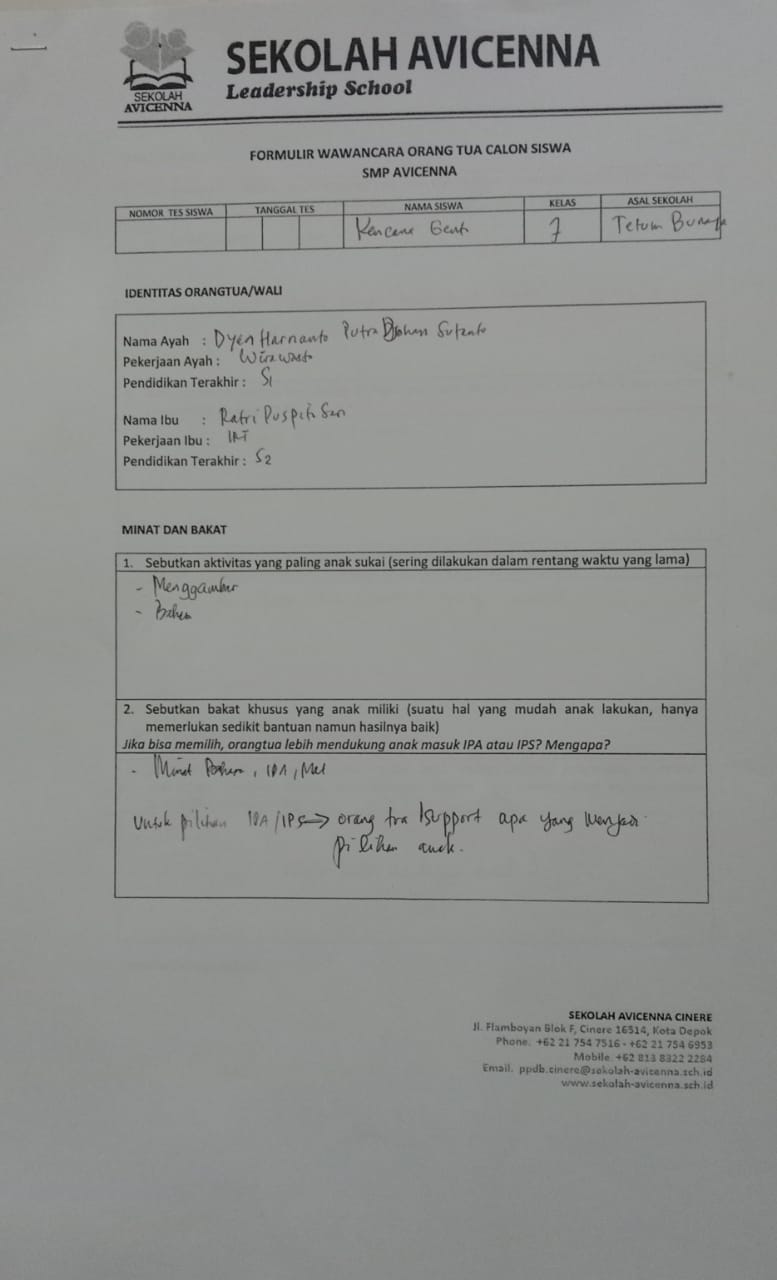 SEKOLAH AVICENNA
Leadership School
SEKOLAH
AVICENNA
FORMULIR WAWANCARA ORANG TUA CALON SISWA
SMP AVICENNA
NOMOR TES SISWA TANGGAL TES NAMA SISWA KELAS ASAL SEKOLAH
Kencana 7 Tetum
IDENTITAS ORANGTUA/WALI
Nama Ayah : Dyen Harnanto Putra Sutanto
Pekerjaan Ayah : Wiraswasta
Pendidikan Terakhir : S1
Nama Ibu : Ratri Puspita Sari
Pekerjaan Ibu : IRT
Pendidikan Terakhir : S2
MINAT DAN BAKAT
1. Sebutkan aktivitas yang paling anak sukai (sering dilakukan dalam rentang waktu yang lama)
- Menggambar
-
2. Sebutkan bakat khusus yang anak miliki (suatu hal yang mudah anak lakukan, hanya
memerlukan sedikit bantuan namun hasilnya baik)
Jika bisa memilih, orangtua lebih mendukung anak masuk IPA atau IPS? Mengapa?
- Minat , IPA, Mat
Untuk pilihan IPA/IPS → orang tua support apa yang menjadi
pilihan anak.
SEKOLAH AVICENNA CINERE
Jl. Flamboyan Blok F, Cinere 16514, Kota Depok
Phone. +62 21 754 7516 - +62 21 754 6953
Mobile. +62 813 8322 2284
Email. ppdb.cinere@sekolah-avicenna.sch.id
www.sekolah-avicenna.sch.id